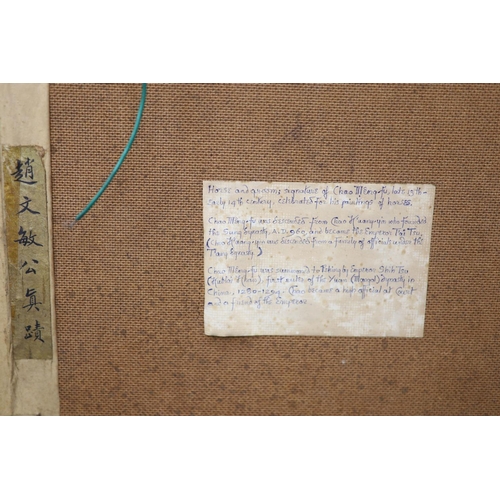 趙文敏公真蹟
Horse and groom: signature of Chao Mengfu, late 13th -
early 14th century, celebrated for his paintings of horses.
Chao Mengfu was descended from Chao K'uang-yin who founded
the Sung Dynasty, A.D. 960, and became the Emperor T'ai Tsu,
(Chao K'uang-yin was descended from a family of officials under the
T'ang Dynasty)
Chao Mengfu was summoned to Peking by Emperor Shih Tsu
(Kublai Khan), first ruler of the Yuan (Mongol) dynasty in
China, 1280-1294. Chao became a high official at Court
and a friend of the Emperor.